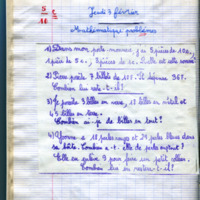 Jeudi 3 février
Mathématique problèmes
1) Dans mon porte monnaie, j'ai 3 pièces de 10c,
1 pièce de 5c, 3 pièces de 2c. Quelle est cette somme?
2) Pierre possède 7 billets de 10F. Il dépense 36F.
Combien lui reste-t-il?
3) Je possède 9 billes en verre, 12 billes en métal et
4 5 billes en
Combien ai-je de billes en tout?
4) Yvonne a 18 perles rouges et 24 perles bleues dans
sa boîte. Combien a-t-elle de perles en tout?
Elle en enlève 9 pour faire un petit collier.
Combien lui en restera-t-il?